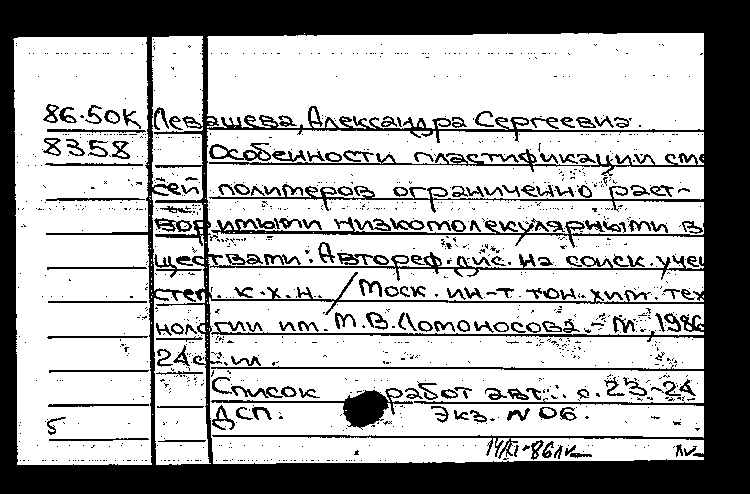 86-50К Левашева, Александра Сергеевна.
8358 Особенности пластификации сме
сей полимеров ограниченно раст-
воримыми низкомолекулярными ве
ществами: Автореф. дис. на соиск. учен
степ. к.х.н. / Моск. ин-т тон. хим. тех
нологии им. М.В. Ломоносова. - М., 1986
24 с. ил.
Список работ авт.: с. 23-24
ДСП. Экз. N 06.
5